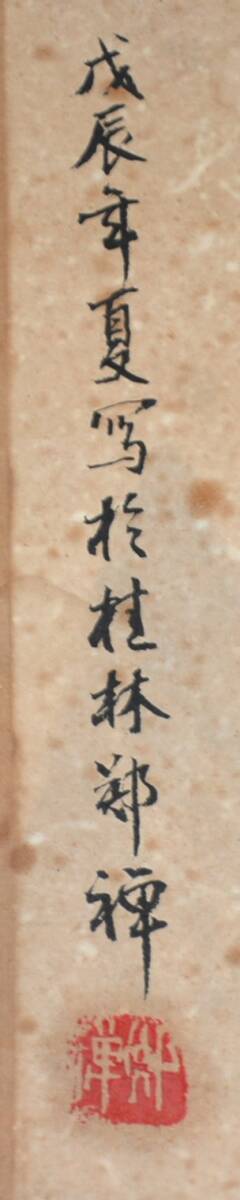 戊辰年夏写於桂林郑禅